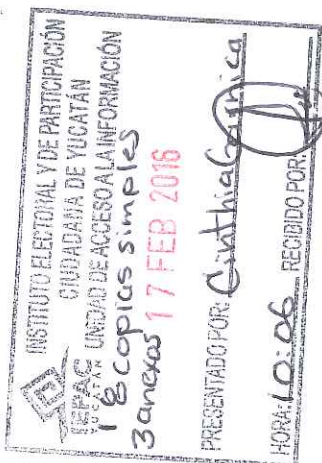 INSTITUTO ELECTORAL Y DE PARTICIPACIÓN
CIUDADANA DE YUCATÁN
UNIDAD DE ACCESO A LA INFORMACIÓN
IEPAC
YUCATÁN
18 copias simples
3 anexos 17 FEB 2016
PRESENTADO POR: Cinthia
HORA: 10:06 RECIBIDO POR: